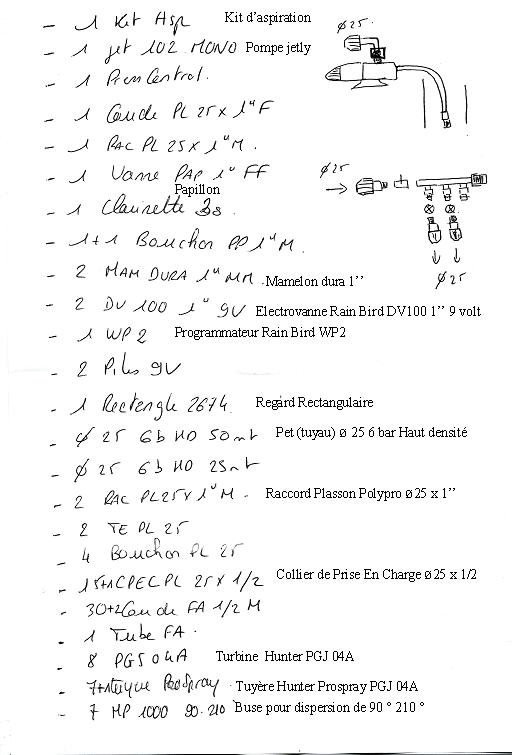 - 1 Kit Asp Kit d'aspiration
- 1 jet 102 MONO Pompe jetly
- 1 Presscontrol.
- 1 Coude PL 25 x 1" F
- 1 RAC PL 25 x 1" M.
- 1 Vanne PAP 1" FF
Papillon
- 1 Clarinette 3s.
- 1+1 Bouchon PP 1" M.
- 2 MAM DURA 1" MM. Mamelon dura 1''
- 2 DV 100 1" 9V Electrovanne Rain Bird DV100 1'' 9 volt
- 1 WP2 Programmateur Rain Bird WP2
- 2 Piles 9V
- 1 Rectangle 2674. Regard Rectangulaire
- ø 25 6b HD 50mt Pet (tuyau) ø 25 6 bar Haut densité
- ø 25 6b HD 25mt
- 2 RAC PL25x1" M. Raccord Plasson Polypro ø 25 x 1''
2 TE PL 25
- 4 Bouchon PL 25
- 15+1CPEC PL 25 x 1/2 Collier de Prise En Charge ø 25 x 1/2
- 30+2Coude FA 1/2 M
- 1 Tube FA.
- 8 PGJ 04A Turbine Hunter PGJ 04A
- 7+1tuyère ProSpray Tuyère Hunter Prospray PGJ 04A
- 7 MP 1000 90-210 Buse pour dispersion de 90 ° 210 °
ø 25.
ø25
ø 25